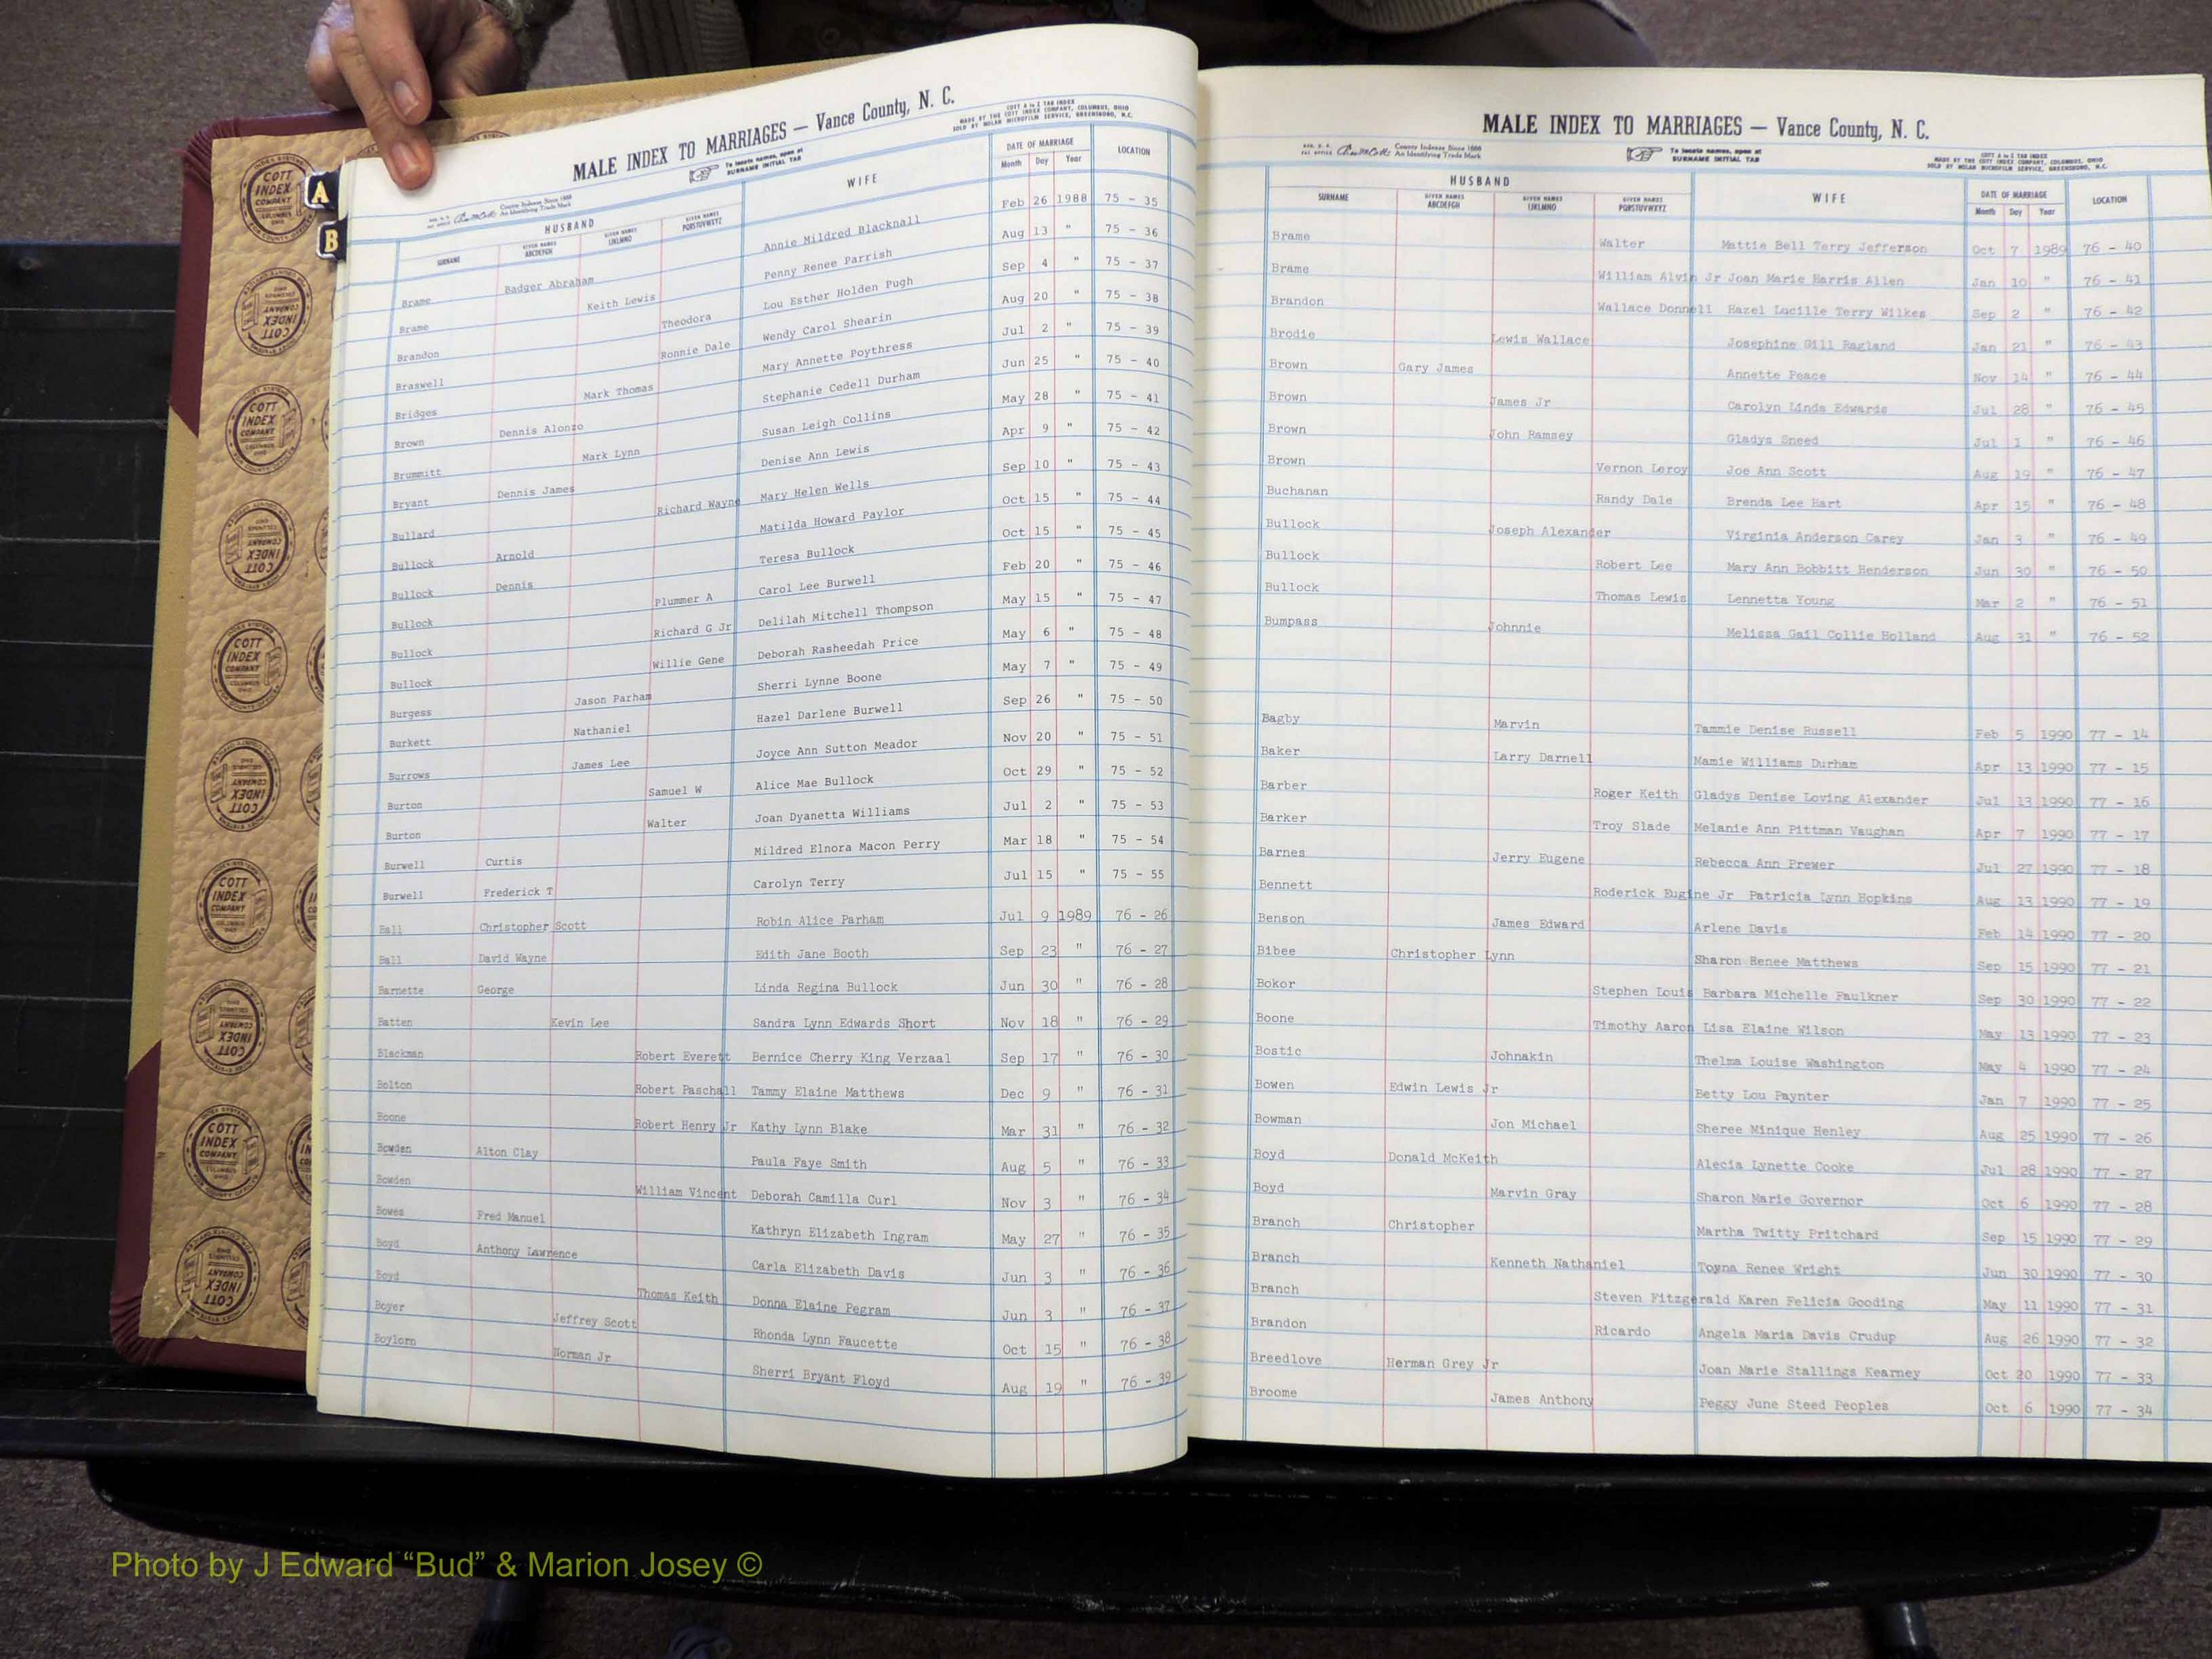 MALE INDEX TO MARRIAGES — Vance County, N. C.
COTT A to Z TAB INDEX
MADE BY THE COTT INDEX COMPANY, COLUMBUS, OHIO
SOLD BY NOLAN MICROFILM SERVICE, GREENSBORO, N.C.
County Indexes Since 1888
An Identifying Trade Mark
To locate names, open at
SURNAME INITIAL TAB
HUSBAND WIFE DATE OF MARRIAGE LOCATION
SURNAME GIVEN NAMES ABCDEFGH GIVEN NAMES IJKLMNO GIVEN NAMES PQRSTUVWXYZ Month Day Year
Brame Badger Abraham Annie Mildred Blacknall Feb 26 1988 75 - 35
Brame Keith Lewis Penny Renee Parrish Aug 13 " 75 - 36
Brandon Theodora Lou Esther Holden Pugh Sep 4 " 75 - 37
Braswell Ronnie Dale Wendy Carol Shearin Aug 20 " 75 - 38
Bridges Mark Thomas Mary Annette Poythress Jul 2 " 75 - 39
Brown Dennis Alonzo Stephanie Cedell Durham Jun 25 " 75 - 40
Brummitt Mark Lynn Susan Leigh Collins May 28 " 75 - 41
Bryant Dennis James Denise Ann Lewis Apr 9 " 75 - 42
Bullard Richard Wayne Mary Helen Wells Sep 10 " 75 - 43
Bullock Arnold Matilda Howard Paylor Oct 15 " 75 - 44
Bullock Dennis Teresa Bullock Oct 15 " 75 - 45
Bullock Plummer A Carol Lee Burwell Feb 20 " 75 - 46
Bullock Richard G Jr Delilah Mitchell Thompson May 15 " 75 - 47
Bullock Willie Gene Deborah Rasheedah Price May 6 " 75 - 48
Burgess Jason Parham Sherri Lynne Boone May 7 " 75 - 49
Burkett Nathaniel Hazel Darlene Burwell Sep 26 " 75 - 50
Burrows James Lee Joyce Ann Sutton Meador Nov 20 " 75 - 51
Burton Samuel W Alice Mae Bullock Oct 29 " 75 - 52
Burton Walter Joan Dyanetta Williams Jul 2 " 75 - 53
Burwell Curtis Mildred Elnora Macon Perry Mar 18 " 75 - 54
Burwell Frederick T Carolyn Terry Jul 15 " 75 - 55
Ball Christopher Scott Robin Alice Parham Jul 9 1989 76 - 26
Ball David Wayne Edith Jane Booth Sep 23 " 76 - 27
Barnette George Linda Regina Bullock Jun 30 " 76 - 28
Batten Kevin Lee Sandra Lynn Edwards Short Nov 18 " 76 - 29
Blackman Robert Everett Bernice Cherry King Verzaal Sep 17 " 76 - 30
Bolton Robert Paschall Tammy Elaine Matthews Dec 9 " 76 - 31
Boone Robert Henry Jr Kathy Lynn Blake Mar 31 " 76 - 32
Bowden Alton Clay Paula Faye Smith Aug 5 " 76 - 33
Bowden William Vincent Deborah Camilla Curl Nov 3 " 76 - 34
Bowes Fred Manuel Kathryn Elizabeth Ingram May 27 " 76 - 35
Boyd Anthony Lawrence Carla Elizabeth Davis Jun 3 " 76 - 36
Boyd Thomas Keith Donna Elaine Pegram Jun 3 " 76 - 37
Boyer Jeffrey Scott Rhonda Lynn Faucette Oct 15 " 76 - 38
Boylorn Norman Jr Sherri Bryant Floyd Aug 19 " 76 - 39
MALE INDEX TO MARRIAGES — Vance County, N. C.
County Indexes Since 1888
An Identifying Trade Mark
To locate names, open at
SURNAME INITIAL TAB
COTT A to Z TAB INDEX
MADE BY THE COTT INDEX COMPANY, COLUMBUS, OHIO
SOLD BY NOLAN MICROFILM SERVICE, GREENSBORO, N.C.
HUSBAND WIFE DATE OF MARRIAGE LOCATION
SURNAME GIVEN NAMES ABCDEFGH GIVEN NAMES IJKLMNO GIVEN NAMES PQRSTUVWXYZ Month Day Year
Brame Walter Mattie Bell Terry Jefferson Oct 7 1989 76 - 40
Brame William Alvin Jr Joan Marie Harris Allen Jan 10 " 76 - 41
Brandon Wallace Donnell Hazel Lucille Terry Wilkes Sep 2 " 76 - 42
Brodie Lewis Wallace Josephine Gill Ragland Jan 21 " 76 - 43
Brown Gary James Annette Peace Nov 14 " 76 - 44
Brown James Jr Carolyn Linda Edwards Jul 28 " 76 - 45
Brown John Ramsey Gladys Sneed Jul 1 " 76 - 46
Brown Vernon Leroy Joe Ann Scott Aug 19 " 76 - 47
Buchanan Randy Dale Brenda Lee Hart Apr 15 " 76 - 48
Bullock Joseph Alexander Virginia Anderson Carey Jan 3 " 76 - 49
Bullock Robert Lee Mary Ann Bobbitt Henderson Jun 30 " 76 - 50
Bullock Thomas Lewis Lennetta Young Mar 2 " 76 - 51
Bumpass Johnnie Melissa Gail Collie Holland Aug 31 " 76 - 52
Bagby Marvin Tammie Denise Russell Feb 5 1990 77 - 14
Baker Larry Darnell Mamie Williams Durham Apr 13 1990 77 - 15
Barber Roger Keith Gladys Denise Loving Alexander Jul 13 1990 77 - 16
Barker Troy Slade Melanie Ann Pittman Vaughan Apr 7 1990 77 - 17
Barnes Jerry Eugene Rebecca Ann Prewer Jul 27 1990 77 - 18
Bennett Roderick Eugine Jr Patricia Lynn Hopkins Aug 13 1990 77 - 19
Benson James Edward Arlene Davis Feb 14 1990 77 - 20
Bibee Christopher Lynn Sharon Renee Matthews Sep 15 1990 77 - 21
Bokor Stephen Louis Barbara Michelle Faulkner Sep 30 1990 77 - 22
Boone Timothy Aaron Lisa Elaine Wilson May 13 1990 77 - 23
Bostic Johnakin Thelma Louise Washington May 4 1990 77 - 24
Bowen Edwin Lewis Jr Betty Lou Paynter Jan 7 1990 77 - 25
Bowman Jon Michael Sheree Minique Henley Aug 25 1990 77 - 26
Boyd Donald McKeith Alecia Lynette Cooke Jul 28 1990 77 - 27
Boyd Marvin Gray Sharon Marie Governor Oct 6 1990 77 - 28
Branch Christopher Martha Twitty Pritchard Sep 15 1990 77 - 29
Branch Kenneth Nathaniel Toyna Renee Wright Jun 30 1990 77 - 30
Branch Steven Fitzgerald Karen Felicia Gooding May 11 1990 77 - 31
Brandon Ricardo Angela Maria Davis Crudup Aug 26 1990 77 - 32
Breedlove Herman Grey Jr Joan Marie Stallings Kearney Oct 20 1990 77 - 33
Broome James Anthony Peggy June Steed Peoples Oct 6 1990 77 - 34
A
B
COTT INDEX COMPANY
Photo by J Edward “Bud” & Marion Josey ©